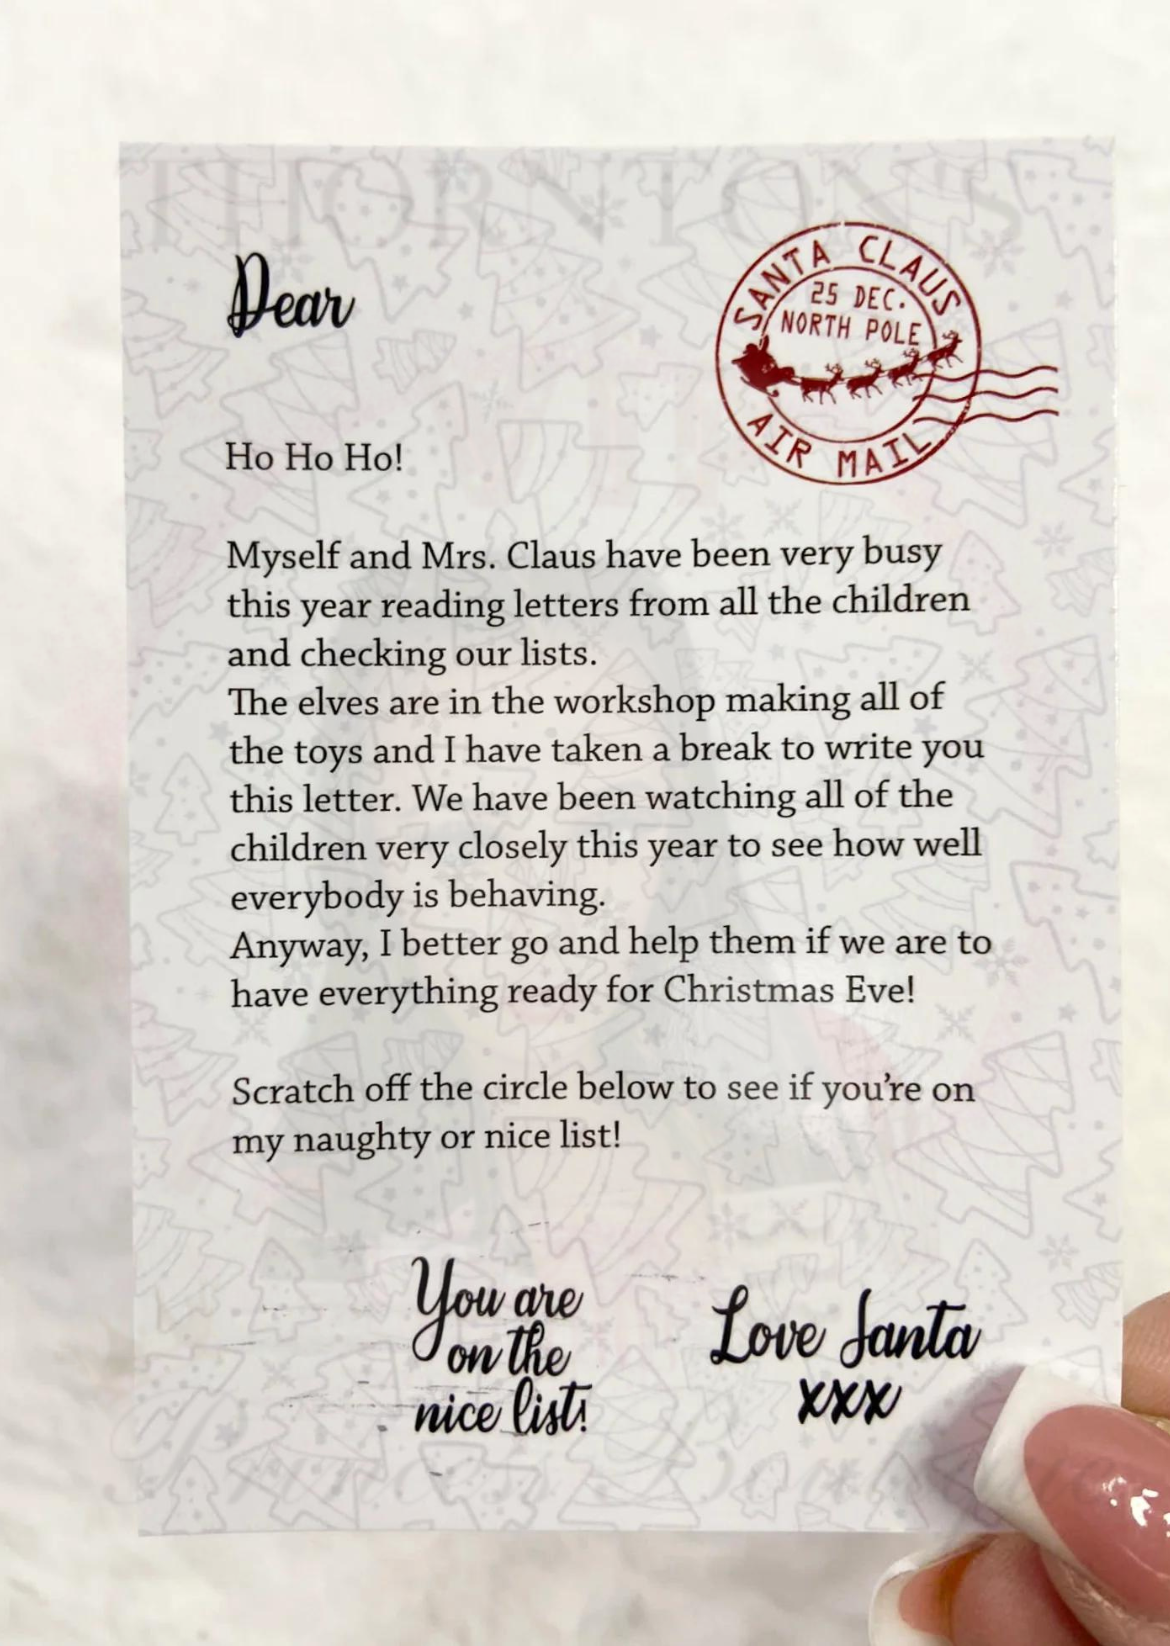 THORNTON'S
Dear
SANTA CLAUS
25 DEC.
NORTH POLE
AIR MAIL
Ho Ho Ho!
Myself and Mrs. Claus have been very busy
this year reading letters from all the children
and checking our lists.
The elves are in the workshop making all of
the toys and I have taken a break to write you
this letter. We have been watching all of the
children very closely this year to see how well
everybody is behaving.
Anyway, I better go and help them if we are to
have everything ready for Christmas Eve!
Scratch off the circle below to see if you’re on
my naughty or nice list!
You are
on the
nice list!
Love Santa
xxx